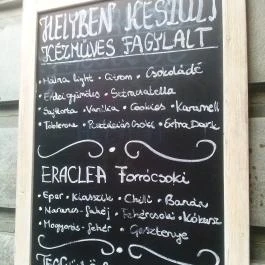 HELYBEN KÉSZÜLT
KÉZMŰVES FAGYLALT
• Málna light • Citrom • Csokoládé
• Erdei gyümölcs • Sztracsatella
• Sajttorta • Vanília • Cookies • Karamell
• Toblerone • Pisztáciás Csoki • Extra Dark
ERACLEA Forrócsoki
• Eper • Klasszik • Chili • Banán
• Narancs-fahéj • Fehércsoki • Kókusz
• Mogyorós-fehér • Gesztenye